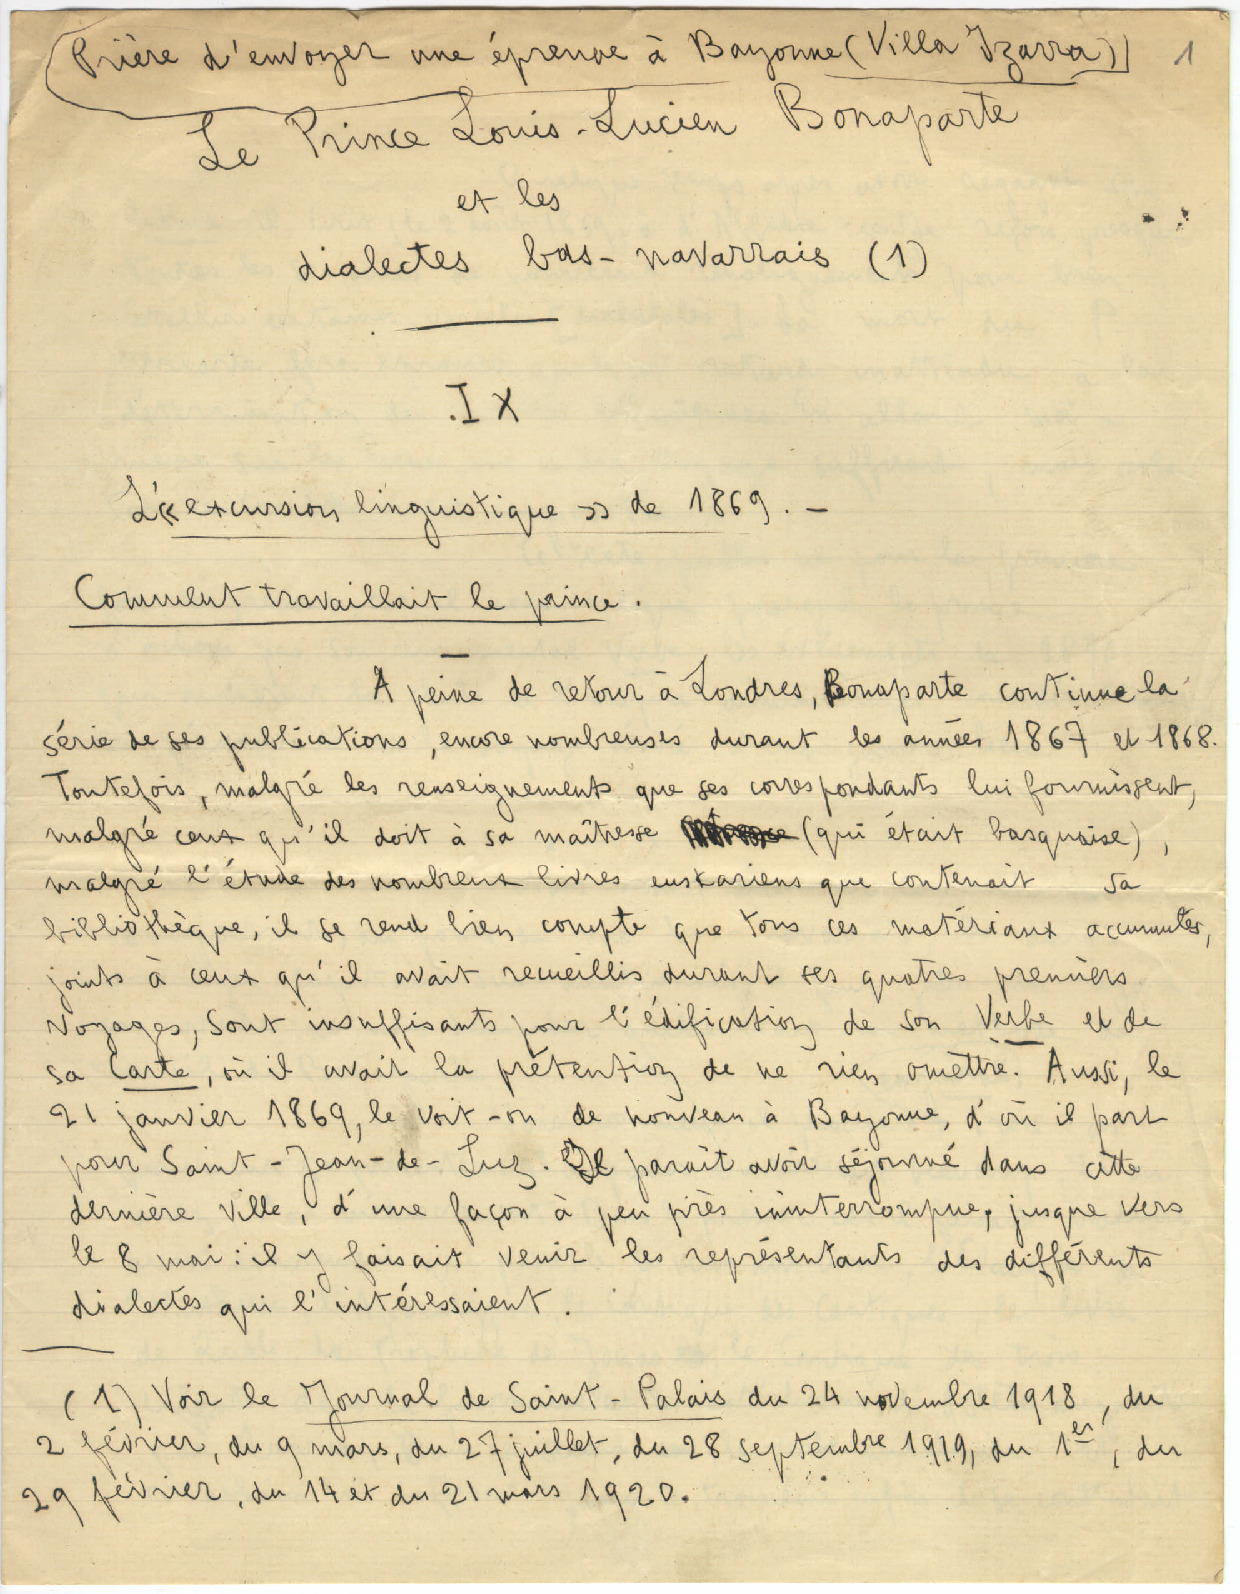 Prière d'envoyer une épreuve à Bayonne (Villa Izarra) 1
Le Prince Louis-Lucien Bonaparte
et les
dialectes bas-navarrais (1)
IX
L'« excursion linguistique » de 1869. -
Comment travaillait le prince.
A peine de retour à Londres, Bonaparte continue la
série de ses publications, encore nombreuses durant les années 1867 et 1868.
Toutefois, malgré les renseignements que ses correspondants lui fournissent,
malgré ceux qu'il doit à sa maîtresse (qui était basquaise),
malgré l'étude des nombreux livres euskariens que contenait sa
bibliothèque, il se rend bien compte que tous ces matériaux accumulés,
joints à ceux qu'il avait recueillis durant ses quatres premiers
voyages, sont insuffisants pour l'édification de son Verbe et de
sa Carte, où il avait la prétention de ne rien omettre. Aussi, le
21 janvier 1869, le voit-on de nouveau à Bayonne, d'où il part
pour Saint-Jean-de-Luz. Il paraît avoir séjourné dans cette
dernière ville, d'une façon à peu près ininterrompue, jusque vers
le 8 mai : il y faisait venir les représentants des différents
dialectes qui l'intéressaient.
(1) Voir le Journal de Saint-Palais du 24 novembre 1918, du
2 février, du 9 mars, du 27 juillet, du 28 septembre 1919, du 1er, du
29 février, du 14 et du 21 mars 1920.